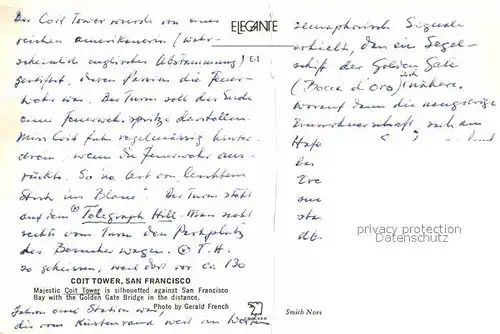 Der Coit Tower wurde von einer
reichen Amerikanerin (wahr-
scheinlich englischer Abstammung)
gestiftet, deren Passion die Feuer-
wehr war. Der Turm soll das Ende
einer Feuerwehrspritze darstellen.
Miss Coit fuhr regelmässig hinter-
drein, wenn die Feuerwehr aus-
rückte. So 'ne Art von leichtem
Stich ins Blaue". Der Turm steht
auf dem Telegraph Hill. Man sieht
rechts vom Turm den Parkplatz
der Besucher wagen. T. H.
so geheissen, weil dort vor ca. 130
COIT TOWER, SAN FRANCISCO
Majestic Coit Tower is silhouetted against San Francisco
Bay with the Golden Gate Bridge in the distance.
Photo by Gerald French
Jahren eine Station war,
die vom Küstenrand weit im Westen
ELEGANTE
E-1
CROCKER
semaphorisch Signale
erhielt, dass ein Segel-
schiff der Golden Gate
(Bocca d'oro) sich nähere.
Worauf dann die neugierige
Einwohnerschaft sich am
Hafe
Das
sta
db.
privacy protection
watermark
Smith Nove